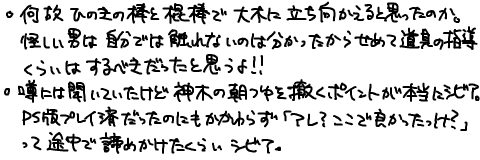 。何故ひのきの棒と棍棒で大木に立ち向かえると思ったのか。
怪しい男は自分では触れないのは分かったからせめて道具の指導
くらいはするべきだったと思うよ!!
。噂には聞いていたけど神木の朝つゆを撒くポイントが本当にシビア。
PS版プレイ済だったのにもかかわらず「アレ?ここで良かったっけ?」
って途中で諦めかけたくらいシビア。